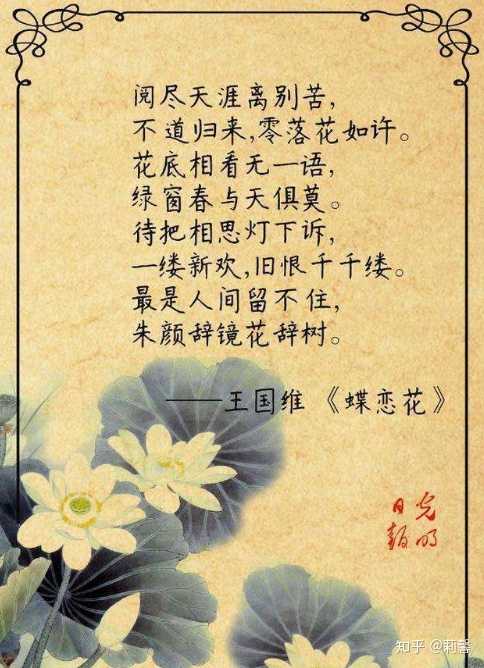 阅尽天涯离别苦,
不道归来,零落花如许。
花底相看无一语,
绿窗春与天俱莫。
待把相思灯下诉,
一缕新欢,旧恨千千缕。
最是人间留不住,
朱颜辞镜花辞树。
——王国维 《蝶恋花》
光明
日报
知乎 @莉馨